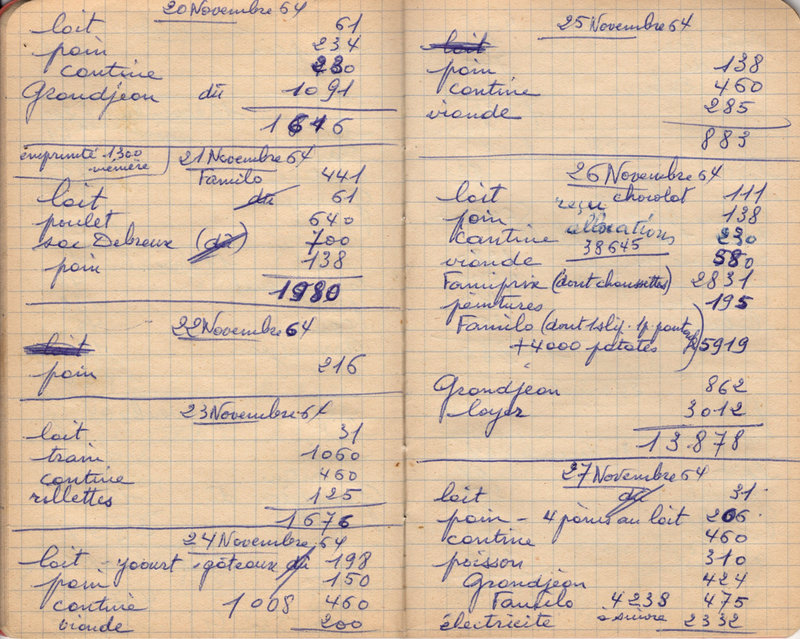 20 Novembre 64
lait 61
pain 234
cantine 230
Grandjean dû 1091
1616
emprunté 1300 21 Novembre 64
Familo 441
lait dû 61
poulet 640
sac Debreux (dû) 700
pain 138
1980
22 Novembre 64
lait
pain 216
23 Novembre 64
lait 31
train 1060
cantine 460
rillettes 125
1676
24 Novembre 64
lait - yaourt - gâteaux dû 198
pain 150
cantine 1008 460
viande 200
25 Novembre 64
lait
pain 138
cantine 460
viande 285
883
26 Novembre 64
lait chocolat 111
pain reçu 138
cantine allocations 230
viande 38645 580
Famiprix (dont chaussettes) 2831
peintures 195
Familo (dont 1 slip. 1 p
+4000 patates 5919
Grandjean 862
loyer 3012
13.878
27 Novembre 64
lait dû 31
pain - 4 pains au lait 266
cantine 460
poisson 310
Grandjean 424
Familo 4238 475
électricité à suivre 2332